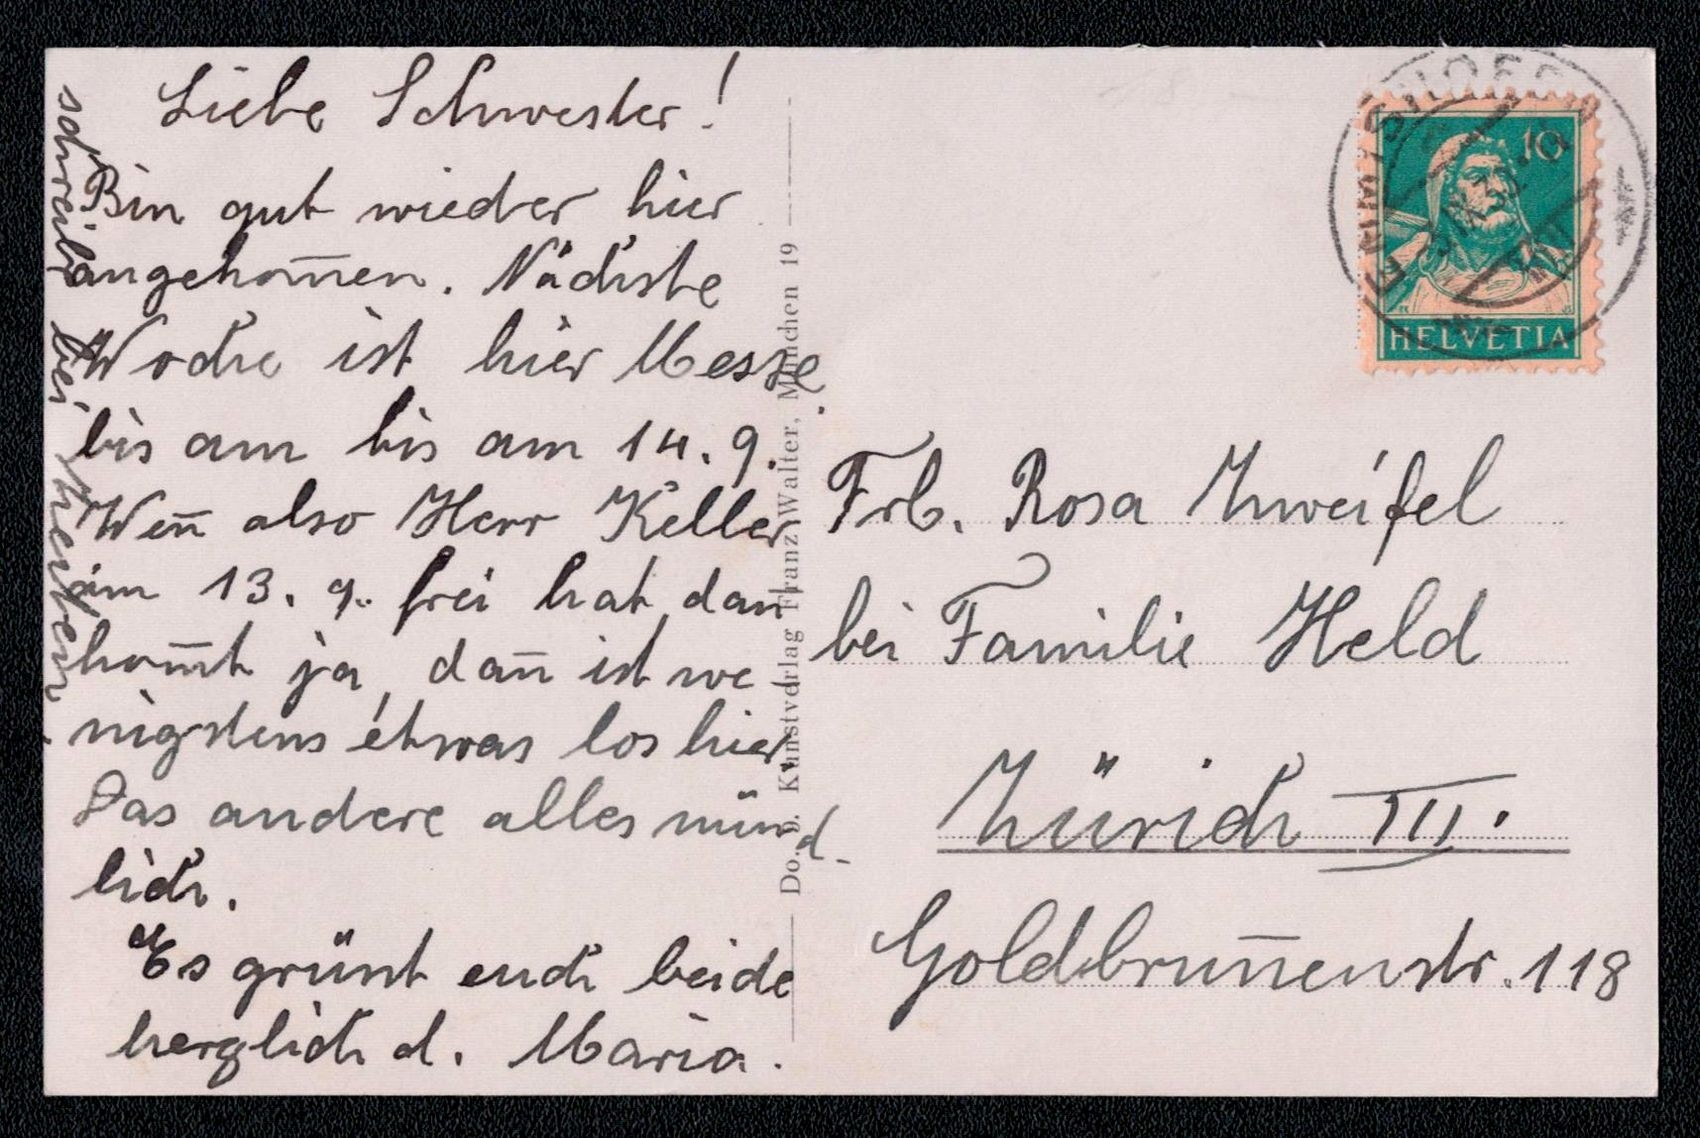 Liebe Schwester!
Bin gut wieder hier
angekom̄en. Nächste
Woche ist hier Messe
bis am bis am 14. 9.
Wen̄ also Herr Keller
am 13. 9. frei hat, dan
kom̄t ja, dan̄ ist we-
nigstens etwas los hier.
Das andere alles münd-
lich.
Es grünt euch beide
herzlich d. Maria.
schreib bei
Frl. Rosa Zweifel
bei Familie Held
Zürich III.
Goldbrun̄enstr. 118
Do. 9. Kunstvdrlag Franz Walter, München 19
10
HELVETIA